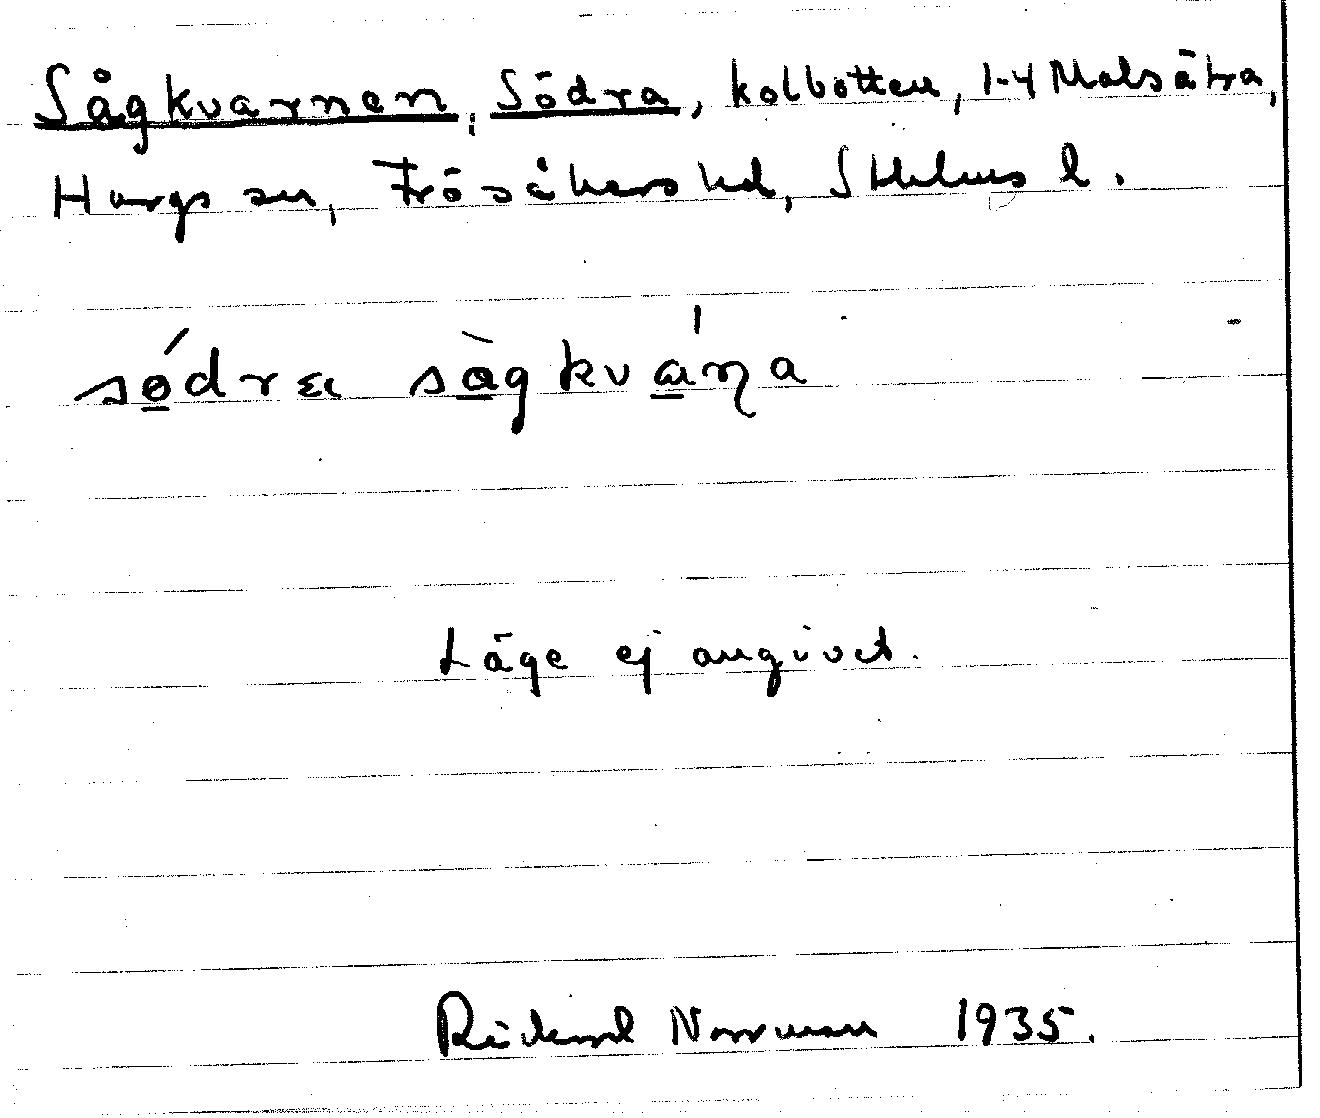 Sågkvarnen, Södra, kolbotten, 1-4 Malsätra,
Hargs sn, Frösåkers hd, Sthlms l.
södra sàgkvána
Läge ej angivet.
Rickard Norrman 1935.